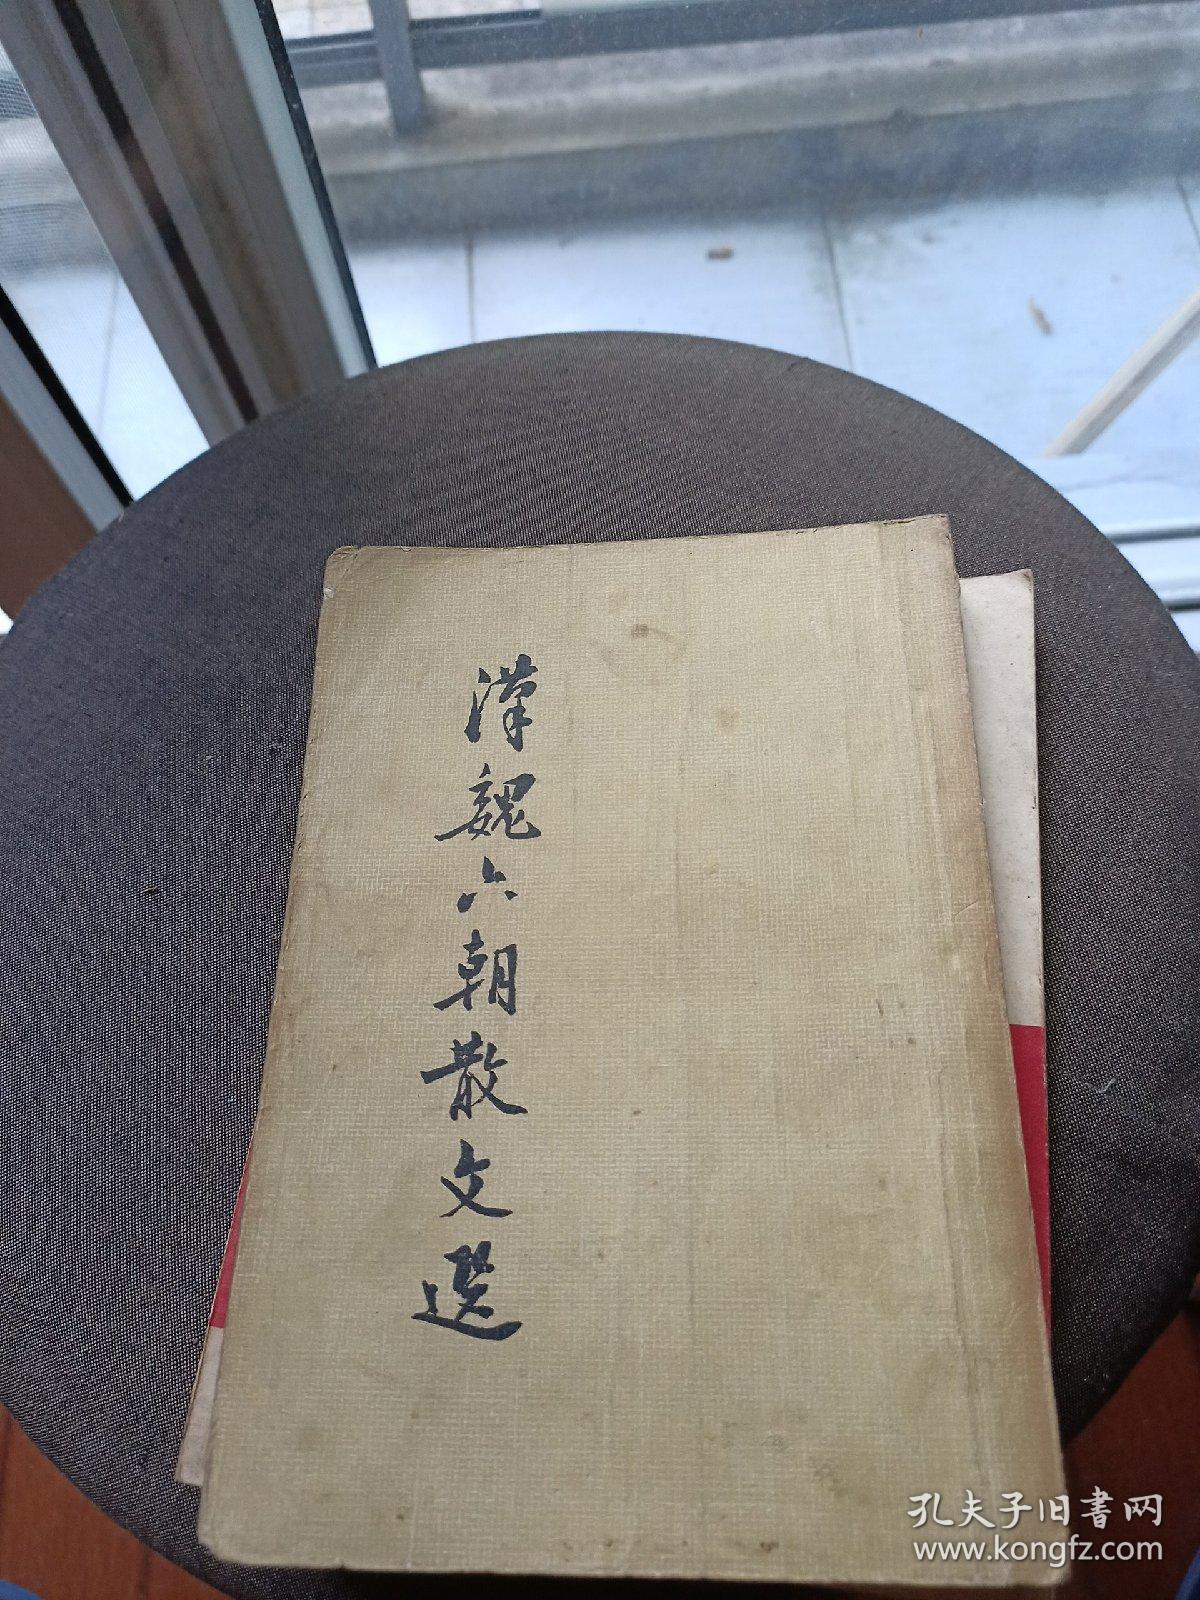 漢魏六朝散文選
孔夫子旧書网
www.kongfz.com